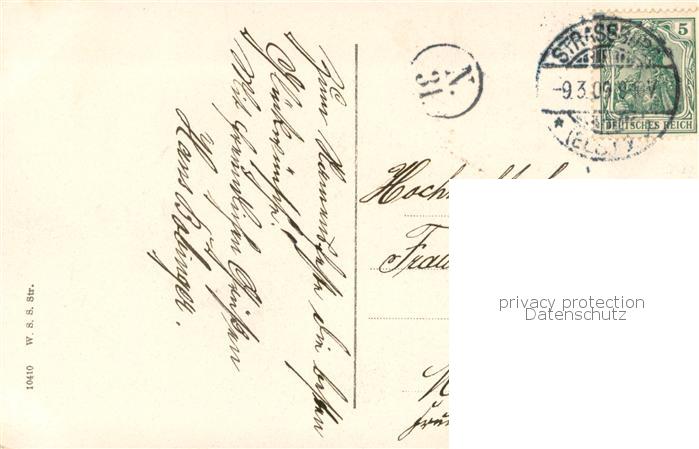 Zum Namensfeste die besten
Glückwünsche.
Mit freundlichen Grüßen
Hans Bobinger.
10410 W. S. S. Str.
V.
31
STRASSBURG
-9.3.09. V
* (ELS.)
5
DEUTSCHES REICH
Frau
privacy protection
Datenschutz